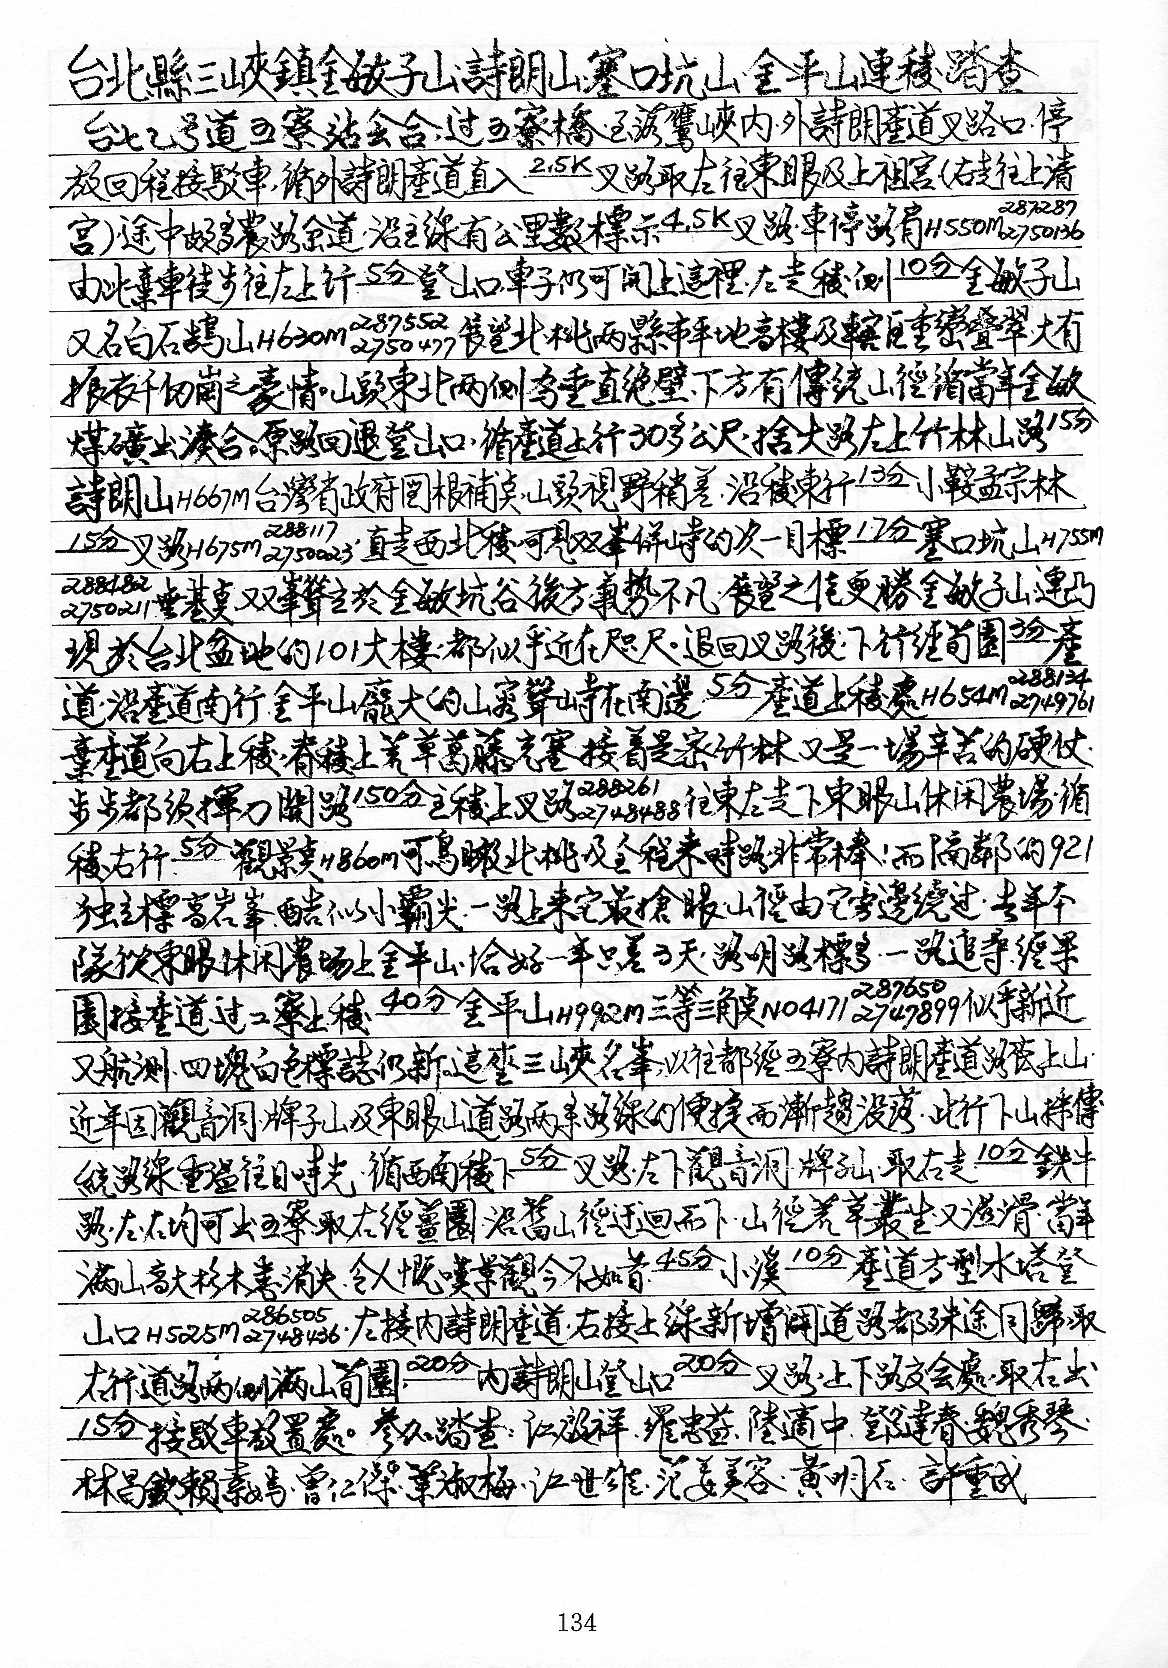 台北縣三峽鎮金敏子山.詩朗山.塞口坑山.金平山連稜踏查
台七乙号道五寮站会合,过五寮橋.至落鷹峽內.外詩朗產道叉路口.停
放回程接駁車,循外詩朗產道直入 2.5K 叉路取左往東眼及上祖宮(右走往上清
宮).途中好多農路余道.沿主線有公里數標示 4.5K 叉路.車停路肩H550M 287287 2750136
由此棄車徒步往左上行 5分 登山口車子仍可開上這裡.左走稜側 10分 金敏子山
又名白石鵠山H630M 287552 2750477 展望北.桃兩縣市平地高樓及轄區重巒疊翠.大有
振衣千仞崗之豪情。山頭東北兩側為垂直絕壁.下方有傳統山徑循當年金敏
煤礦出湊合。原路回退登山口.循產道上行30多公尺.捨大路左上竹林山路 15分
詩朗山H667M台灣省政府圖根補点.山頭視野稍差.沿稜東行 13分 小鞍孟宗林
15分 叉路H675M 288117 2750023.直走西北稜.可見双峯併峙的次一目標 17分 塞口坑山H755M
288182 2750211 無基点.双峯聳立於金敏坑谷後方氣势不凡.展望之佳更勝金敏子山.連凸
現於台北盆地的101大樓.都似乎近在咫尺。退回叉路後.下行經荀園 3分 產
道.沿產道南行.金平山龐大的山容聳峙在南邊 5分 產道上稜處H654M 288134 2749761
棄產道向右上稜.脊稜上荒草葛藤充塞.接着是密竹林.又是一場辛苦的硬仗.
步步都須揮刀開路 150分 主稜上叉路 288261 2748488 往東左走下東眼山休闲農場.循
稜右行 5分 觀景点H860M可鳥瞰北桃及全程來時路.非常棒!而隔鄰的921
独立標高岩峯.酷似小霸尖.一路上來它最搶眼.山徑由它旁邊繞过.去年本
隊從東眼休闲農场上金平山.恰好一年只差五天.路明路標多.一路追尋.經果
園接產道.过工寮上稜 40分 金平山H992M三等三角点NO4171 287650 2747899似乎新近
又航測.四塊白色標誌仍新.這座三峽名峯,以往都經五寮內詩朗產道路段上山.
近年因觀音洞.牌子山及東眼山道路兩条路線的便捷而漸趨没落.此行下山採傳
統路線重溫往日時光.循西南稜下 5分 叉路.左下觀音洞.牌子山.取右走 10分 鉄牛
路.左.右均可出五寮.取右經薑園.沿舊山徑迂迴而下.山徑荒草叢生.又溼滑.當年
滿山高大杉木尽消失.令人慨嘆景觀今不如昔. 45分 小溪 10分 產道方型水塔登
山口H525M 286505 2748436.左接內詩朗產道.右接上線新增開道路都殊途同歸.取
右行道路兩側滿山荀園. 20分 內詩朗山登山口 20分 叉路.上下路交会處.取右出
15分 接駁車放置處。參加踏查:江啟祥.羅忠益.陸適中.鄧達春.魏秀琴.
林昌欽.賴素嬌.曾仁傑.葉淑梅.江世雄.范姜美容.黃明石.許重成
134